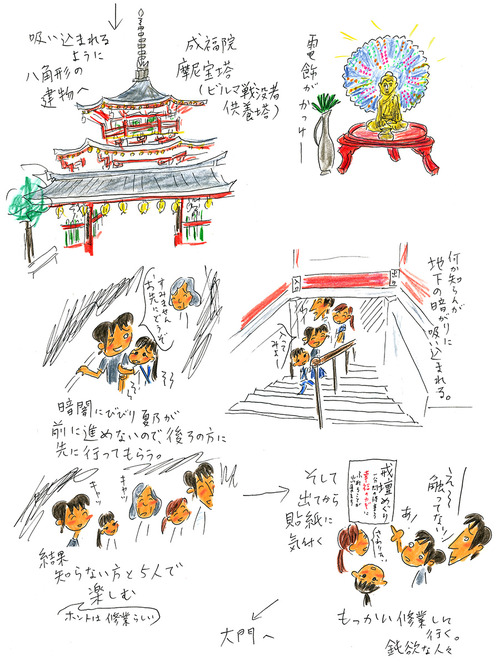 吸い込まれる
ように
八角形の
建物へ
成福院
摩尼宝塔
(ビルマ戦没者
供養塔)
電飾が
かっけー
何か知らんが
地下の暗がりに
吸い込まれる。
入口
出口
入って
みよー
すみません
お先にどうぞ
暗闇にびびり夏乃が
前に進めないので、後ろの方に
先に行ってもらう。
キャッ
キャッ
結果
知らない方と5人で
楽しむ
ホントは修業らしい
そして
出てから
貼紙に
気付く
戒壇めぐり
え〜
触ってない!
あ!
さわりたい
もっかい修業しに
行く。
鈍欲な人々
大門へ